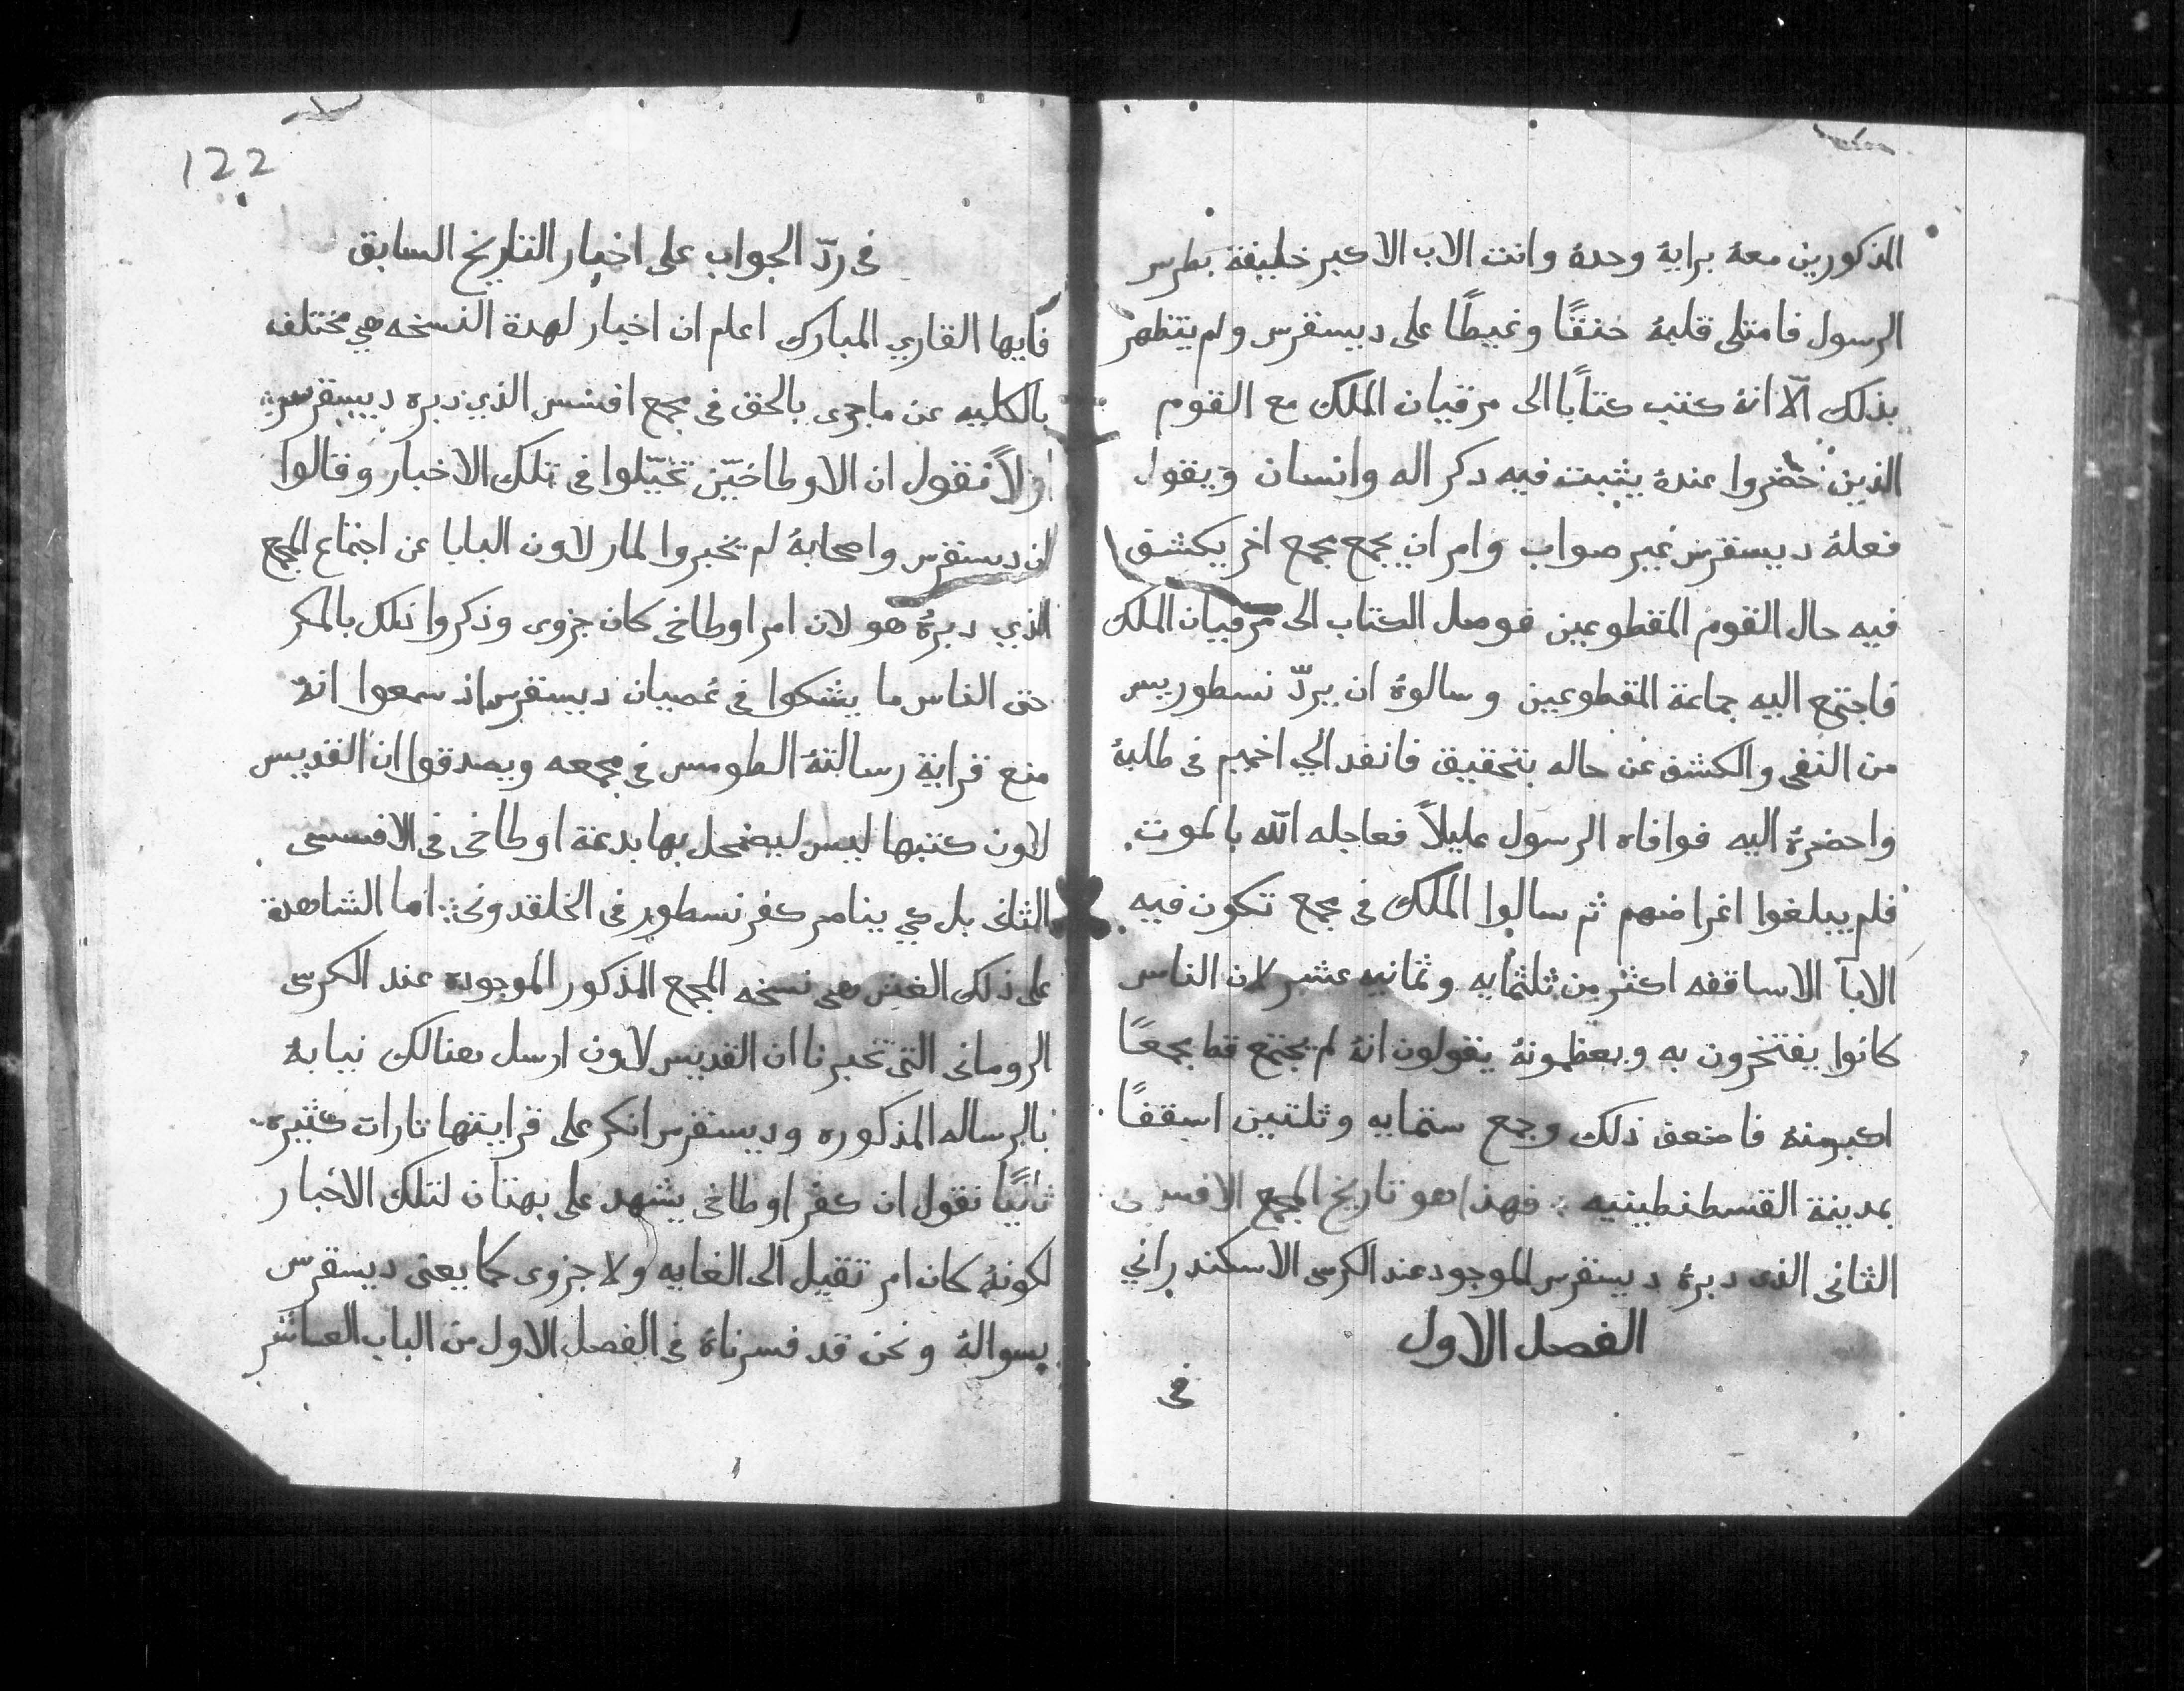 المذكورين معهُ برايهُ وحدهُ وانت الاب الاكبر خليفة بطرس
الرسول فامتلى قلبهُ حنقًا وغيظًا على ديسقرس ولم يتظهر
بذلك الّا انهُ كتب كتابًا الى مرقيان الملك مع القوم
الذين حضروا عندهُ يثبت فيه دكر اله وانسان ويقول
فعلهُ ديسقرس غير صواب وامر ان يجمع مجمع اخر يكشف
فيه حال القوم المقطوعين فوصل الكتاب الى مرقيان الملك
فاجتمع اليه جماعة المقطوعين وسالوهُ ان يردّ نسطوريس
من النفى والكشف عن حاله بتحقيق فانفد الي اخميم فى طلبهُ
واحضرهُ اليه فوافاه الرسول عليلاً فعاجله اللّه بالموت
فلم يبلغوا اغراضهم ثم سالوا الملك فى مجمع تكون فيه
الابآ الاساقفه اكثر من ثلثمايه وثمانيه عشر لان الناس
كانوا يفتخرون به ويعظمونهُ يقولون انهُ لم يجتمع قط مجمعًا
اكبر منهُ فاضعف ذلك وجمع ستمايه وثلتين اسقفًا
بمدينة القسطنطينيه فهذا هو تاريخ المجمع الافسسى
الثانى الذى دبرهُ ديسقرس الموجود عند الكرسى الاسكندراني
الفصل الاول
فى
122
فى ردّ الجواب على اخبار التاريخ السابق
فايها القاري المبارك اعلم ان اخبار لهدة النسخه هي مختلف
بالكليه عن ماجرى بالحق فى مجمع افسس الذي دبره ديسقرس
اولاً نقول ان الاوطاخيّن تخيّلوا فى تلك الاخبار وقالوا
ان ديسقرس واصحابهُ لم يخبروا لمار لاون البابا عن اجتماع المجمع
الذي دبرهُ هو لان امر اوطاخى كان جزوى وذكروا تلك بالمكر
حتى الناس ما يشكوا فى عصيان ديسقرس اذ سمعوا انهُ
منع قراية رسالتهُ الطومس فى مجمعه ويصدقوا ان القديس
لاون كتبها ليس ليضمحل بها بدعة اوطاخى فى الافسسى
الثانى بل كي يناصر كفر نسطور فى الخلقدونى اما الشاهدة
على ذلك الغش هى نسخه المجمع المذكور الموجوده عند الكرسى
الرومانى التى تخبرنا ان القديس لاون ارسل هنالك نيابهُ
بالرساله المذكوره وديسقرس انكر على قرايتها تارات كثيره
ثانيًا نقول ان كفر اوطاخى يشهد على بهتان لتلك الاخبار
لكونهُ كان امر تقيل الى الغايه ولا جزوى كما يعنى ديسقرس
بسوالهُ ونحن قد فسرناهُ فى الفصل الاول من الباب العاشر